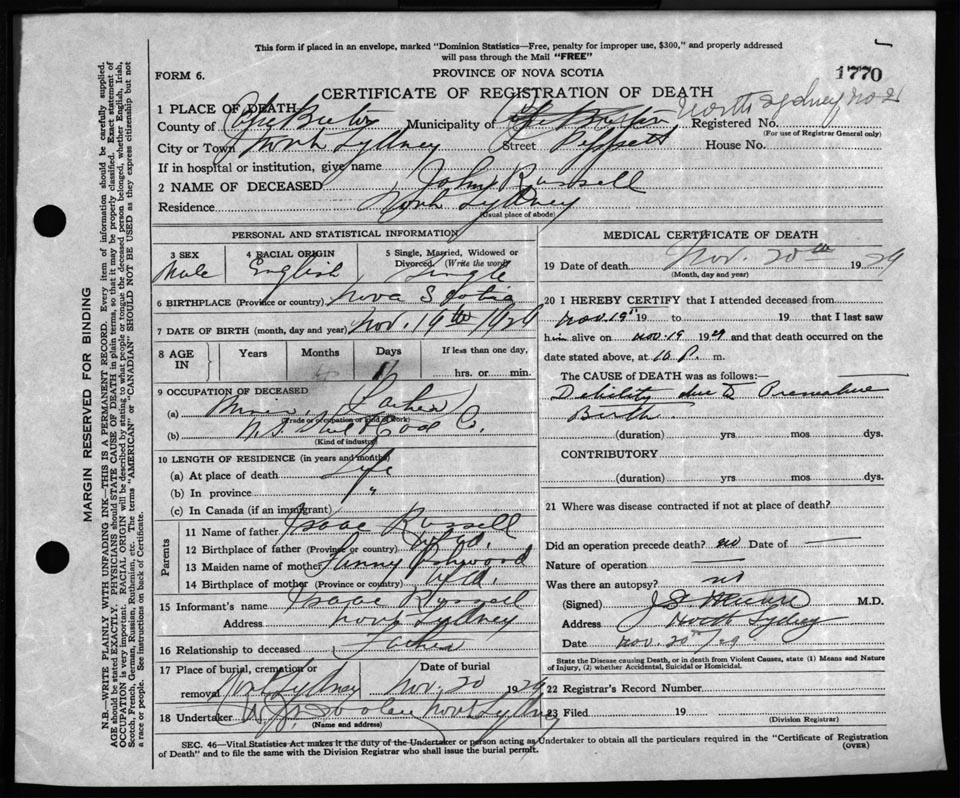 This form if placed in an envelope, marked "Dominion Statistics—Free, penalty for improper use, $300," and properly addressed
will pass through the Mail "FREE"
FORM 6.
PROVINCE OF NOVA SCOTIA
1770
CERTIFICATE OF REGISTRATION OF DEATH
North Sydney No 2
1 PLACE OF DEATH
County of Cape Breton Municipality of Cape Breton Registered No.
(For use of Registrar General only)
City or Town North Sydney Street Peppetts House No.
If in hospital or institution, give name
2 NAME OF DECEASED John Russell
Residence North Sydney
(Usual place of abode)
PERSONAL AND STATISTICAL INFORMATION
3 SEX Male
4 RACIAL ORIGIN English
5 Single, Married, Widowed or Divorced (Write the word) Single
6 BIRTHPLACE (Province or country) Nova Scotia
7 DATE OF BIRTH (month, day and year) Nov. 19th 1929
8 AGE IN Years Months Days If less than one day,
1
hrs. or min.
9 OCCUPATION OF DECEASED
(a) Miner, Father
(Trade or occupation or kind of work)
(b) N.S. Steel & Coal Co.
(Kind of industry)
10 LENGTH OF RESIDENCE (in years and months)
(a) At place of death Life
(b) In province "
(c) In Canada (if an immigrant)
Parents
11 Name of father Isaac Russell
12 Birthplace of father (Province or country) Nfld.
13 Maiden name of mother Fanny
14 Birthplace of mother (Province or country) Nfld.
15 Informant's name Isaac Russell
Address North Sydney
16 Relationship to deceased Father
17 Place of burial, cremation or removal North Sydney
Date of burial Nov. 20 1929
18 Undertaker North Sydney
(Name and address)
MEDICAL CERTIFICATE OF DEATH
19 Date of death Nov. 20th 1929
(Month, day and year)
20 I HEREBY CERTIFY that I attended deceased from
Nov. 19th 19 to 19 that I last saw
him alive on Nov. 19 1929 and that death occurred on the
date stated above, at 10 P. m.
The CAUSE OF DEATH was as follows:—
Debility due to Premature
Birth
(duration) yrs. mos. dys.
CONTRIBUTORY
(duration) yrs. mos. dys.
21 Where was disease contracted if not at place of death?
Did an operation precede death? no Date of —
Nature of operation —
Was there an autopsy? no
(Signed) M.D.
Address North Sydney
Date Nov. 20th/29
State the Disease causing Death, or in death from Violent Causes, state (1) Means and Nature
of Injury, (2) whether Accidental, Suicidal or Homicidal.
22 Registrar's Record Number
23 Filed 19
(Division Registrar)
SEC. 46—Vital Statistics Act makes it the duty of the Undertaker or person acting as Undertaker to obtain all the particulars required in the "Certificate of Registration
of Death" and to file the same with the Division Registrar who shall issue the burial permit.
(OVER)
MARGIN RESERVED FOR BINDING
N.B.—WRITE PLAINLY WITH UNFADING INK—THIS IS A PERMANENT RECORD. Every item of information should be carefully supplied.
AGE should be stated EXACTLY. PHYSICIANS should STATE CAUSE OF DEATH in plain terms, so that it may be properly classified. Exact statement of
OCCUPATION is very important. RACIAL ORIGIN will be described by stating to what people or tongue the deceased person belonged, whether English, Irish,
Scotch, French, German, Russian, Ruthenian, etc. The terms "AMERICAN" or "CANADIAN" SHOULD NOT BE USED as they express citizenship but not
a race or people. See instructions on back of Certificate.